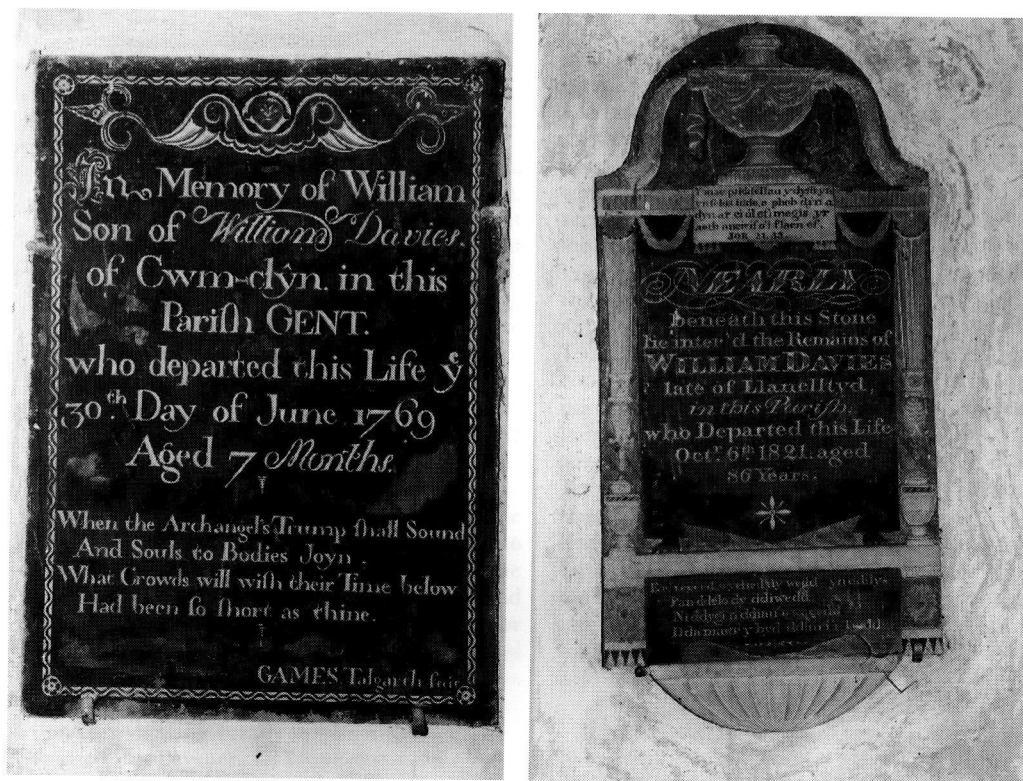 In Memory of William
Son of William Davies.
of Cwm-clŷn. in this
Pariſh GENT.
who departed this Life yͤ
30.th Day of June 1769
Aged 7 Months.
When the Archangel's Trump ſhall Sound
And Souls to Bodies Joyn,
What Crowds will wiſh their Time below
Had been ſo ſhort as thine.
GAMES Talgarth fecit
Y mae priddellau y dyffryn
yn felus iddo, a phob dyn a
dyn ar ei ol ef: megis yr
aeth aneirif o'i flaen ef.
JOB 21.33.
NEARLY
beneath this Stone
lie inter'd the Remains of
WILLIAM DAVIES
late of Llanelltyd,
in this Pariſh.
who Departed this Life
Octr. 6th 1821. aged
86 Years.